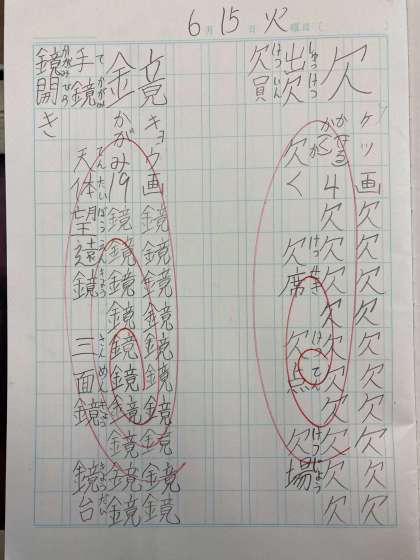 6月15日火曜日( )
欠
ケツ画欠欠欠欠欠欠欠欠欠欠
かける
かく4欠欠欠欠欠欠欠欠欠欠
出欠欠く欠席欠点欠場
しゅっけつかけっせきけってんけつじょう
欠員
けついん
鏡
キョウ画鏡鏡鏡鏡鏡鏡鏡鏡鏡鏡
かがみ19鏡鏡鏡鏡鏡鏡鏡鏡鏡鏡
手鏡天体望遠鏡三面鏡鏡台
てかがみてんたいぼうえんきょうさんめんきょうきょうだい
鏡開き
かがみびら